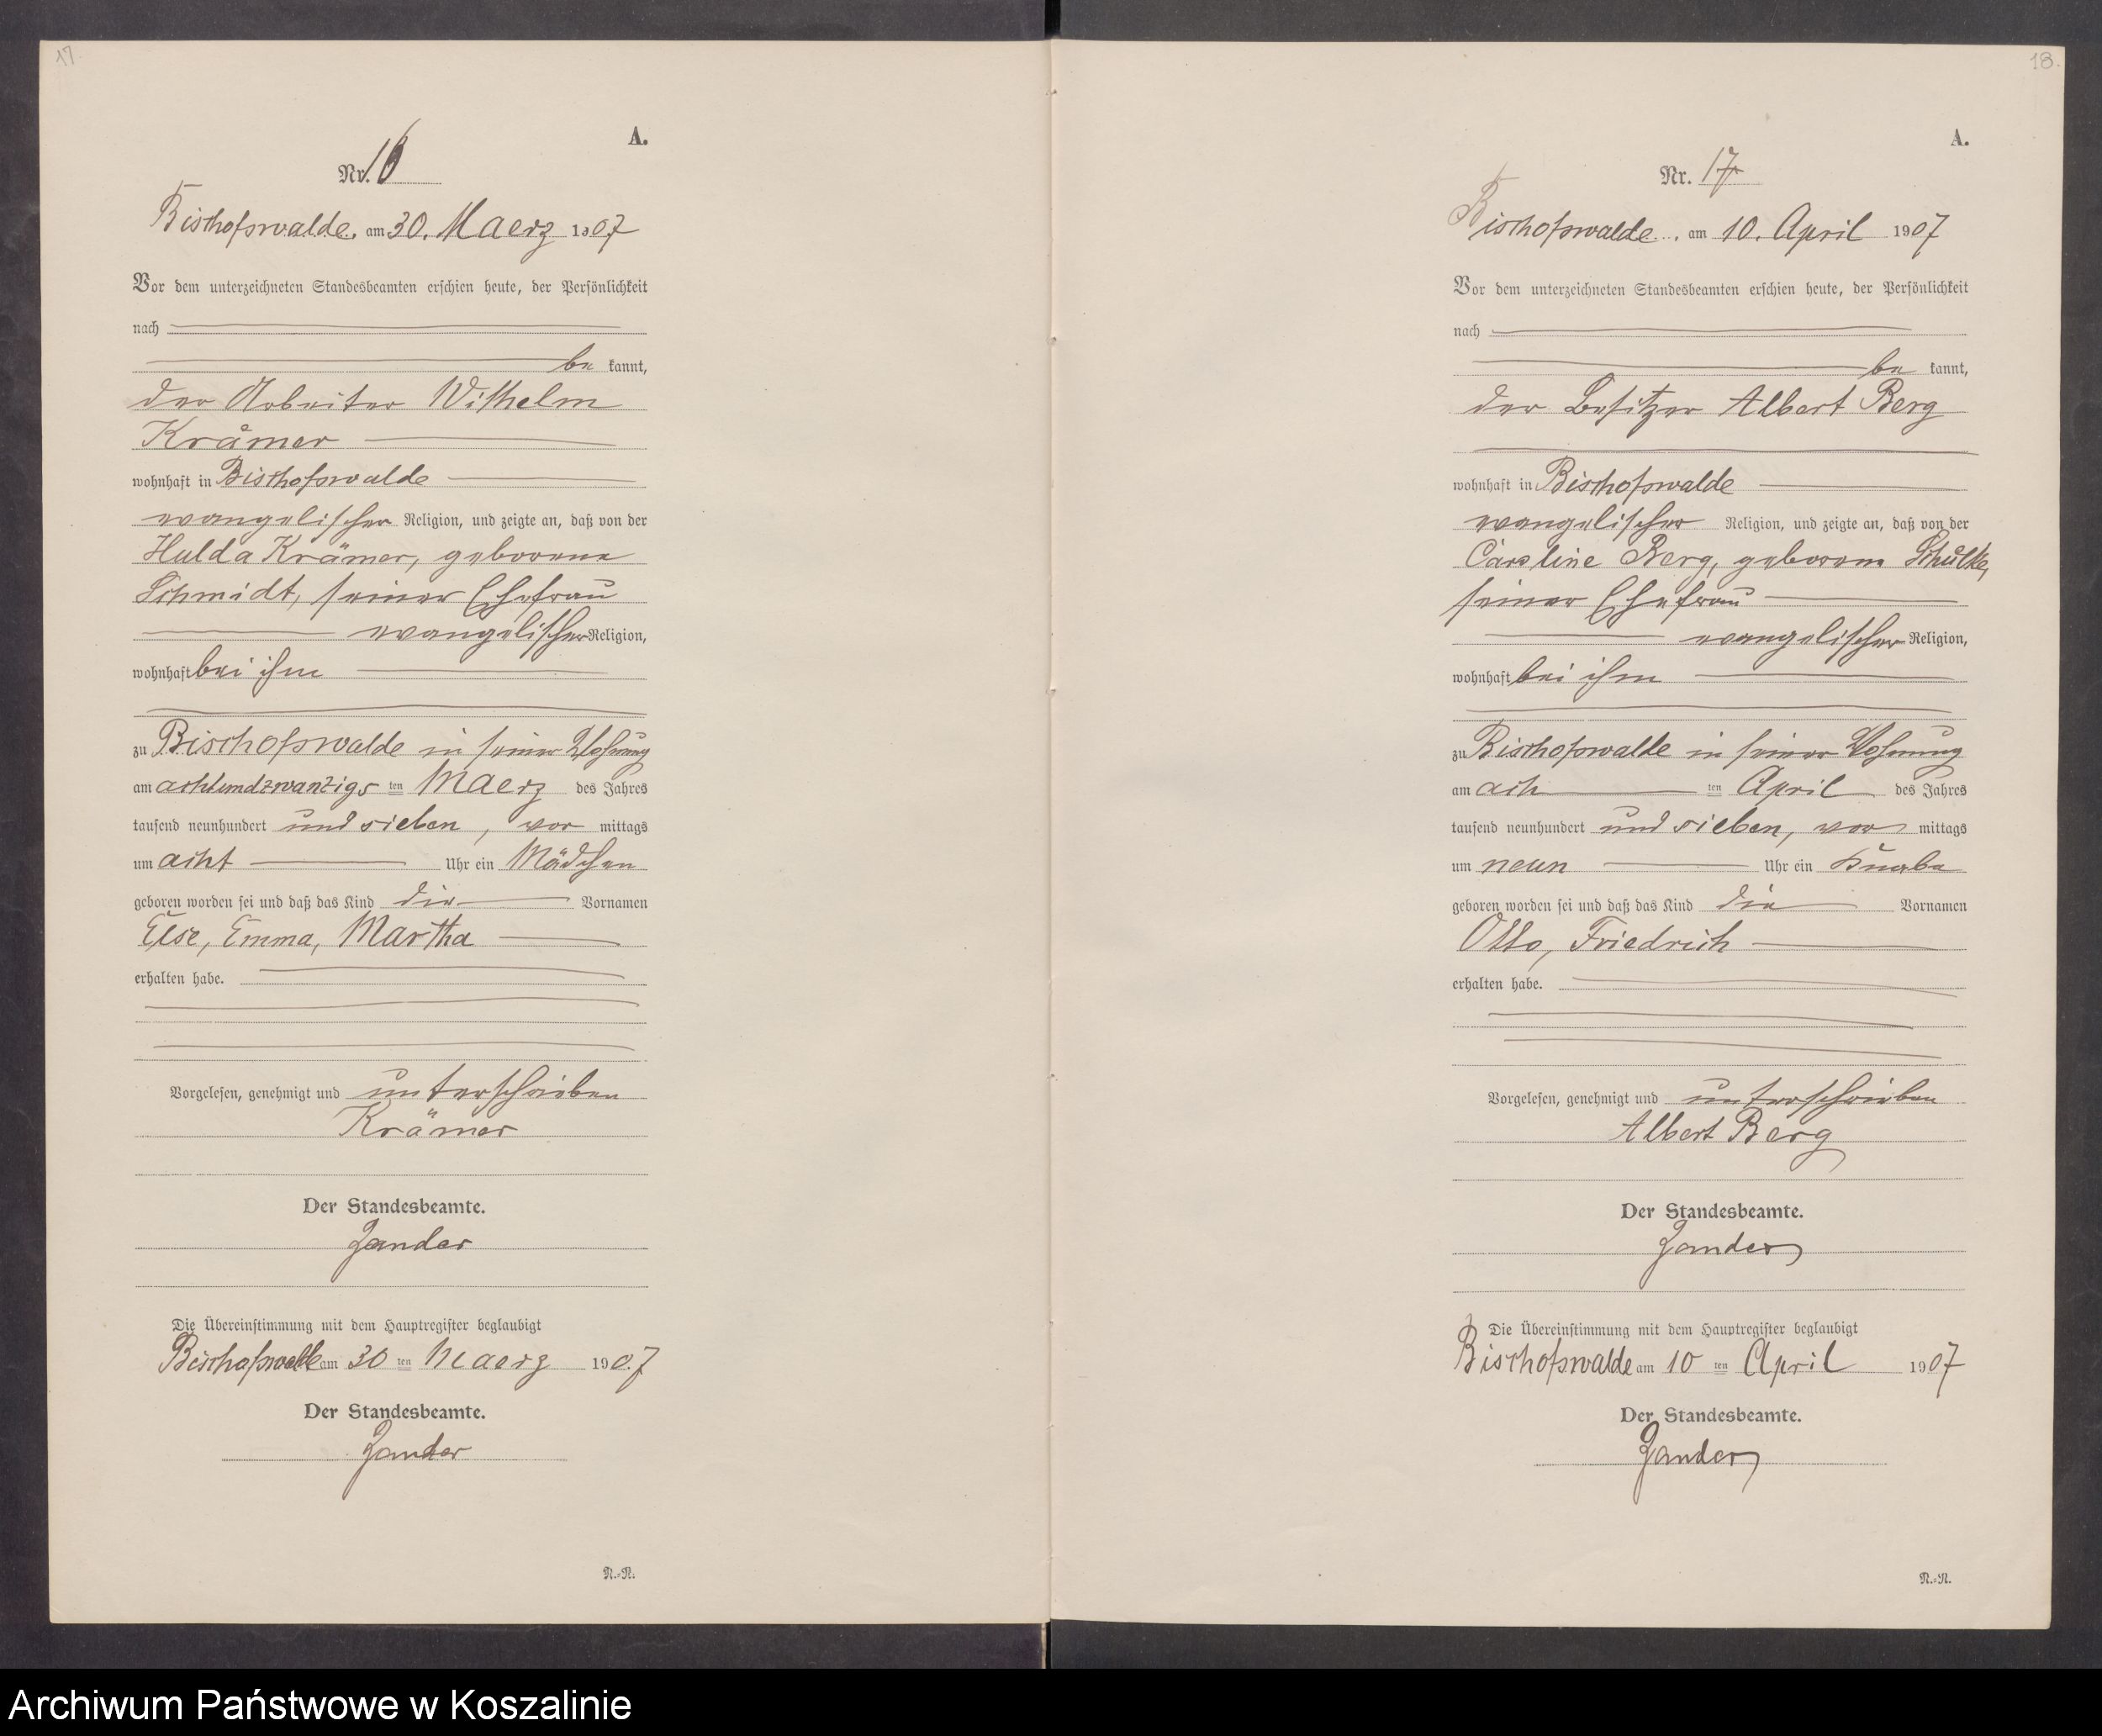 17.
A.
Nr. 16
Bischofswalde, am 30. Maerz 1907
Vor dem unterzeichneten Standesbeamten erschien heute, der Persönlichkeit
nach
be kannt,
der Arbeiter Wilhelm
Krämer
wohnhaft in Bischofswalde
evangelischer Religion, und zeigte an, daß von der
Hulda Krämer, geborene
Schmidt, seiner Ehefrau
evangelischer Religion,
wohnhaft bei ihm
zu Bischofswalde in seiner Wohnung
am achtundzwanzigs ten Maerz des Jahres
tausend neunhundert und sieben, vor mittags
um acht Uhr ein Mädchen
geboren worden sei und daß das Kind die Vornamen
Else, Emma, Martha
erhalten habe.
Vorgelesen, genehmigt und unterschrieben
Krämer
Der Standesbeamte.
Zander
Die Übereinstimmung mit dem Hauptregister beglaubigt
Bischofswalde am 30 ten Maerz 1907
Der Standesbeamte.
Zander
N.=N.
18.
A.
Nr. 17
Bischofswalde, am 10. April 1907
Vor dem unterzeichneten Standesbeamten erschien heute, der Persönlichkeit
nach
be kannt,
der Besitzer Albert Berg
wohnhaft in Bischofswalde
evangelischer Religion, und zeigte an, daß von der
Caroline Berg, geborene Schulke,
seiner Ehefrau
evangelischer Religion,
wohnhaft bei ihm
zu Bischofswalde in seiner Wohnung
am ach ten April des Jahres
tausend neunhundert und sieben, vor mittags
um neun Uhr ein Knabe
geboren worden sei und daß das Kind die Vornamen
Otto, Friedrich
erhalten habe.
Vorgelesen, genehmigt und unterschrieben
Albert Berg
Der Standesbeamte.
Zander
Die Übereinstimmung mit dem Hauptregister beglaubigt
Bischofswalde am 10 ten April 1907
Der Standesbeamte.
Zander
N.=N.
Archiwum Państwowe w Koszalinie